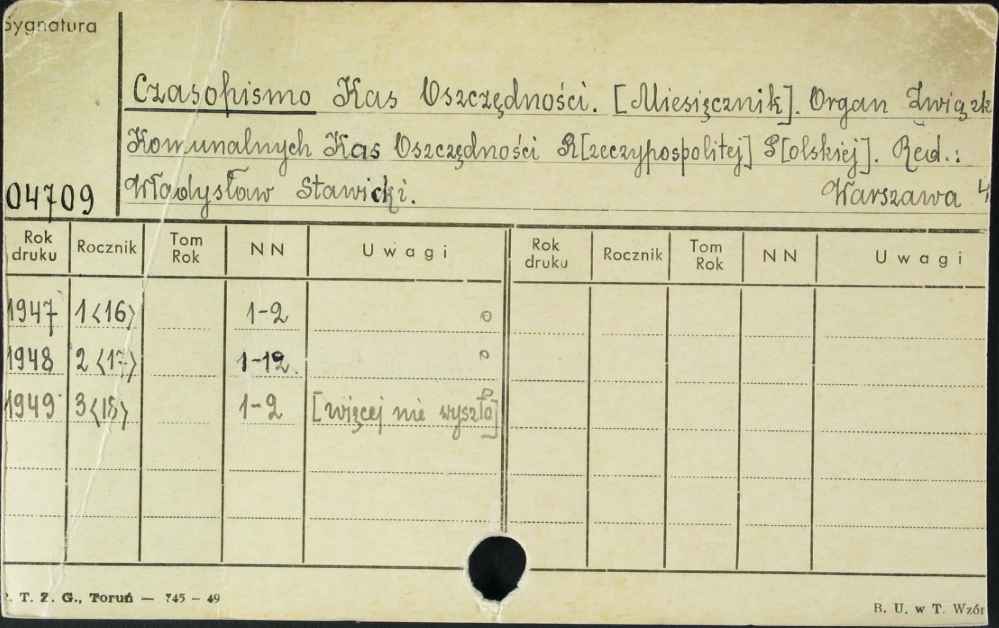 Sygnatura
Czasopismo Kas Oszczędności. [Miesięcznik]. Organ Związk
Komunalnych Kas Oszczędności R[zeczypospolitej] P[olskiej]. Red.:
04709 Władysław Stawicki. Warszawa 4
Rok druku Rocznik Tom Rok NN Uwagi Rok druku Rocznik Tom Rok NN Uwagi
1947 1<16> 1-2
1948 2<17> 1-12.
1949 3<18> 1-2 [więcej nie wyszło]
. T. Z. G., Toruń — 745 - 49 B. U. w T. Wzór